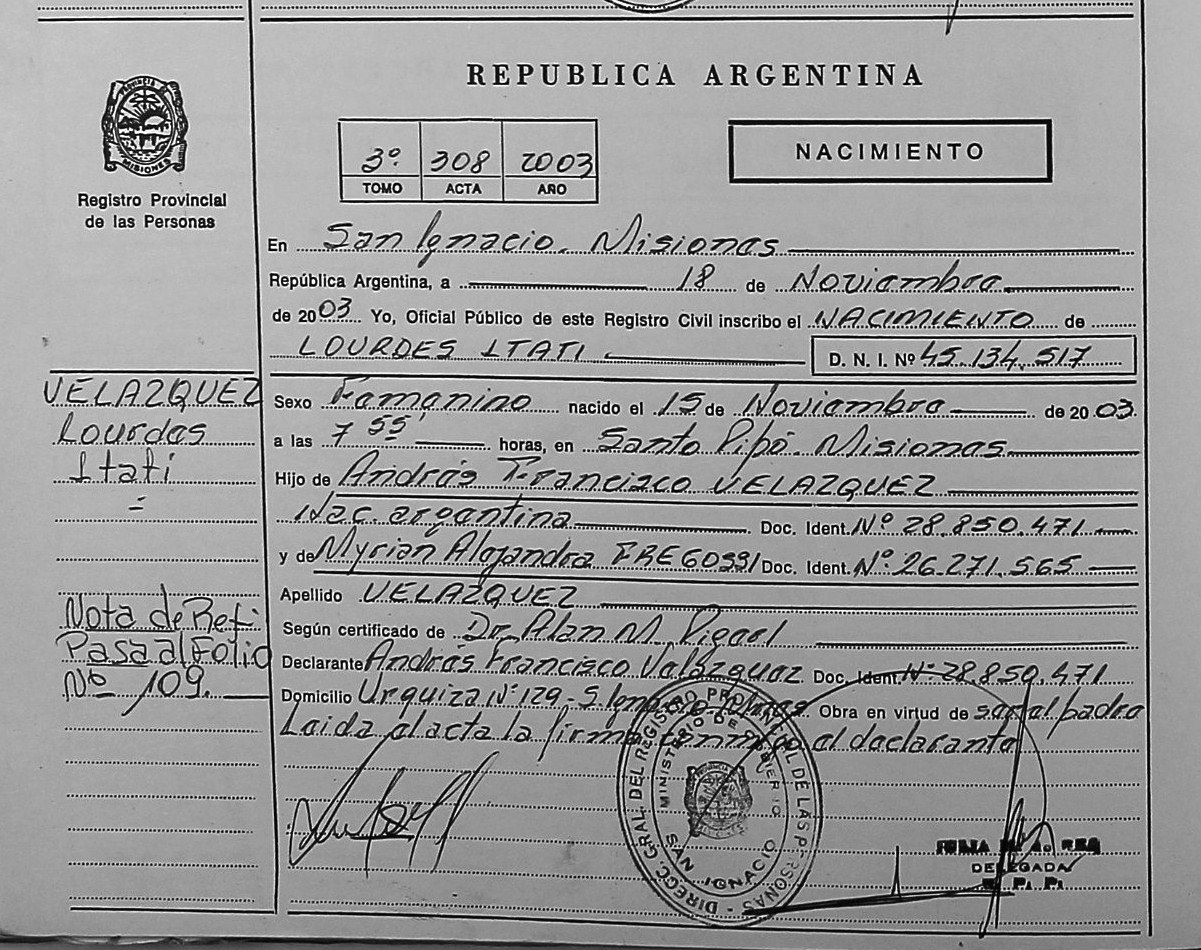 REPUBLICA ARGENTINA
PROVINCIA DE MISIONES
Registro Provincial
de las Personas
3º 308 2003
TOMO ACTA AÑO
NACIMIENTO
En San Ignacio. Misiones
República Argentina, a 18 de Noviembre
de 2003 Yo, Oficial Público de este Registro Civil inscribo el NACIMIENTO de
LOURDES ITATI D. N. I. Nº 45.134.517
VELAZQUEZ
Lourdes
Itati
=
Nota de Ref:
Pasa al Folio
Nº 109.
Sexo Femenino nacido el 15 de Noviembre de 2003
a las 7 55 horas, en Santo Pipó. Misiones
Hijo de Andrés Francisco VELAZQUEZ
Nac. argentina Doc. Ident. Nº 28.850.471
y de Myrian Alejandra FREGOSSI Doc. Ident. Nº 26.271.565
Apellido VELAZQUEZ
Según certificado de Dr. Alan M.
Declarante Andrés Francisco Velázquez Doc. Ident. Nº 28.850.471
Domicilio Urquiza Nº 129 - S. Ignacio Obra en virtud de ser el padre
Leida el acta la firma conmigo el declarante
DIRECC. GRAL. DEL REGISTRO PROVINCIAL DE LAS PERSONAS
MINISTERIO DE GOBIERNO
SAN IGNACIO
DELEGADA
R. P. P.